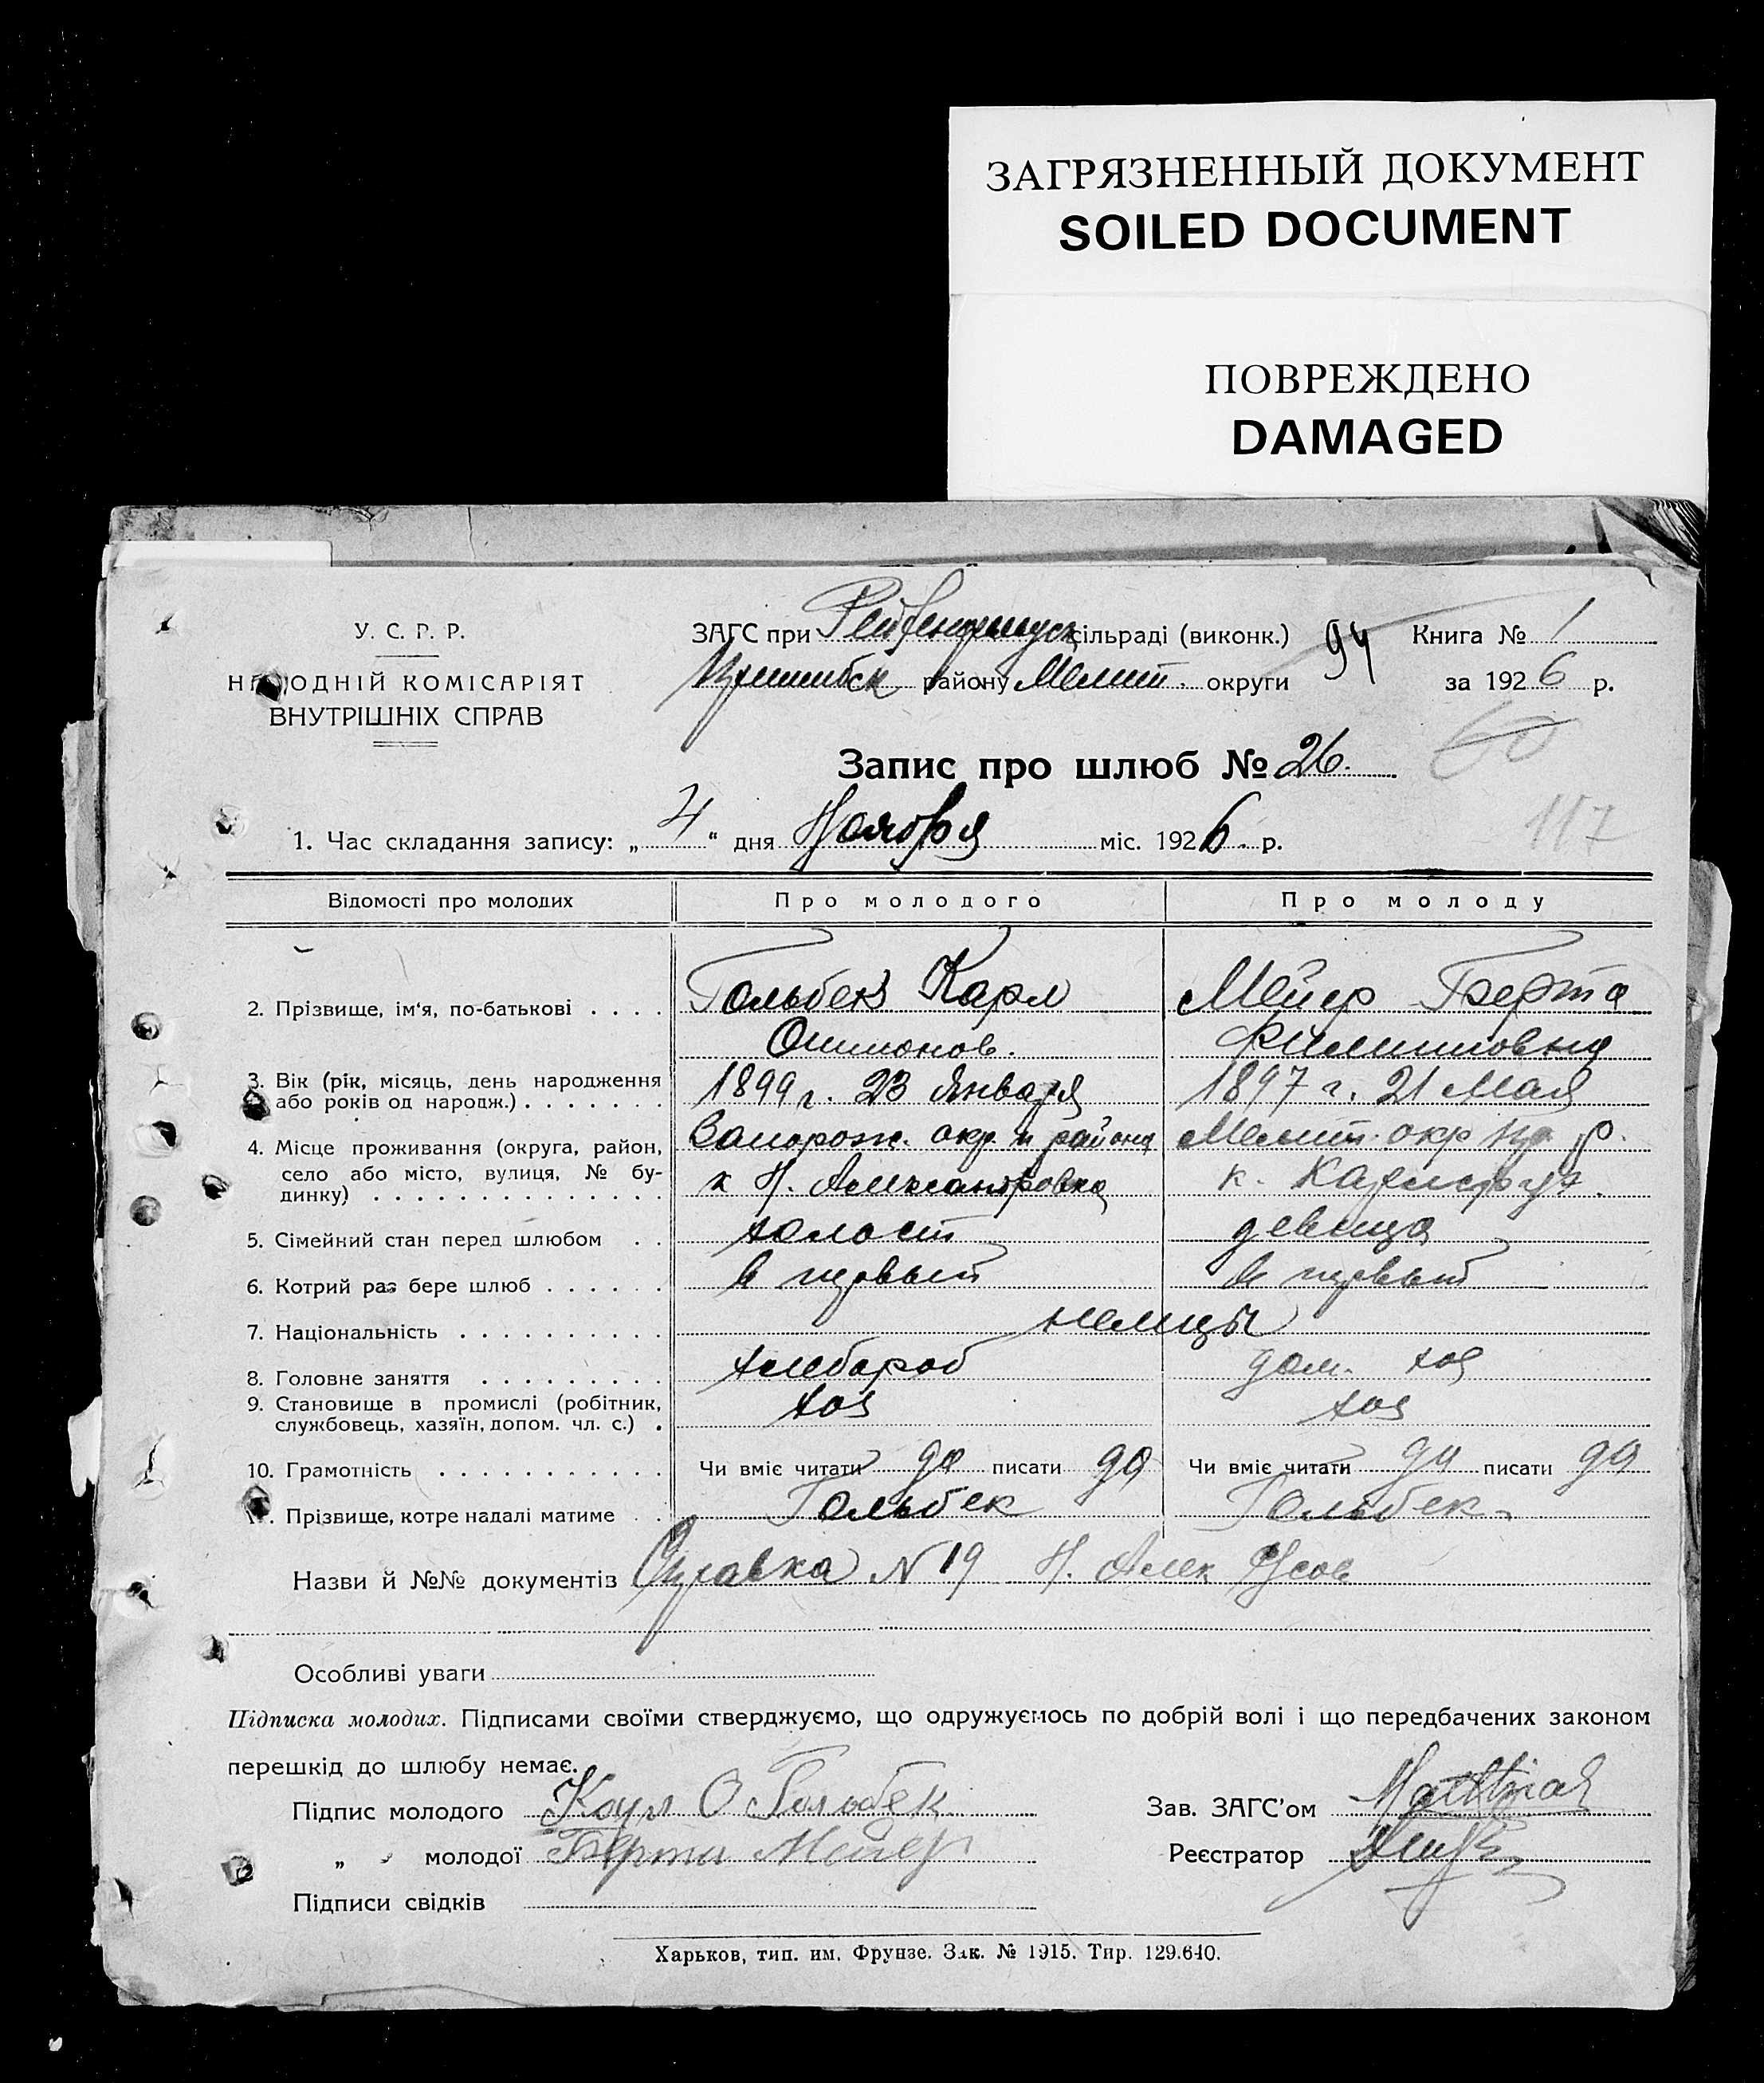 ЗАГРЯЗНЕННЫЙ ДОКУМЕНТ
SOILED DOCUMENT
ПОВРЕЖДЕНО
DAMAGED
У. С. Р. Р.
НАРОДНІЙ КОМІСАРІЯТ
ВНУТРІШНІХ СПРАВ
ЗАГС при сільраді (виконк.) 94 Книга № 1
району Мелит. округи за 1926 р.
Запис про шлюб № 26.
60
1. Час складання запису: „ 4 “ дня Ноября міс. 1926. р.
117
Відомості про молодих Про молодого Про молоду
2. Прізвище, ім'я, по-батькові . . . . Гольбек Карл Мейер Берта
Филипповна
3. Вік (рік, місяць, день народження або років од народж.) . . . . . . . 1899 г. 23 Января 1897 г. 21 Мая
4. Місце проживання (округа, район, село або місто, вулиця, № будинку) . . . . . . . . . . . . . . Запорож. окр. и района Мелит. окр р.
к Н. Александровка к.
5. Сімейний стан перед шлюбом . . холост девица
6. Котрий раз бере шлюб . . . . . . в первый в первый
7. Національність . . . . . . . . . . немцы
8. Головне заняття . . . . . . . . . хлебороб дом. хоз
9. Становище в промислі (робітник, службовець, хазяїн, допом. чл. с.) . хоз хоз
10. Грамотність . . . . . . . . . . . Чи вміє читати да писати да Чи вміє читати да писати да
. Прізвище, котре надалі матиме . . Гольбек Гольбек
Назви й №№ документів Справка N 19 Н. Алек
Особливі уваги
Підписка молодих. Підписами своїми стверджуємо, що одружуємось по добрій волі і що передбачених законом
перешкід до шлюбу немає.
Підпис молодого Карл О Гольбек Зав. ЗАГС'ом
„ молодої Берта Мейер Реєстратор
Підписи свідків
Харьков, тип. им. Фрунзе. Зак. № 1915. Тир. 129.640.